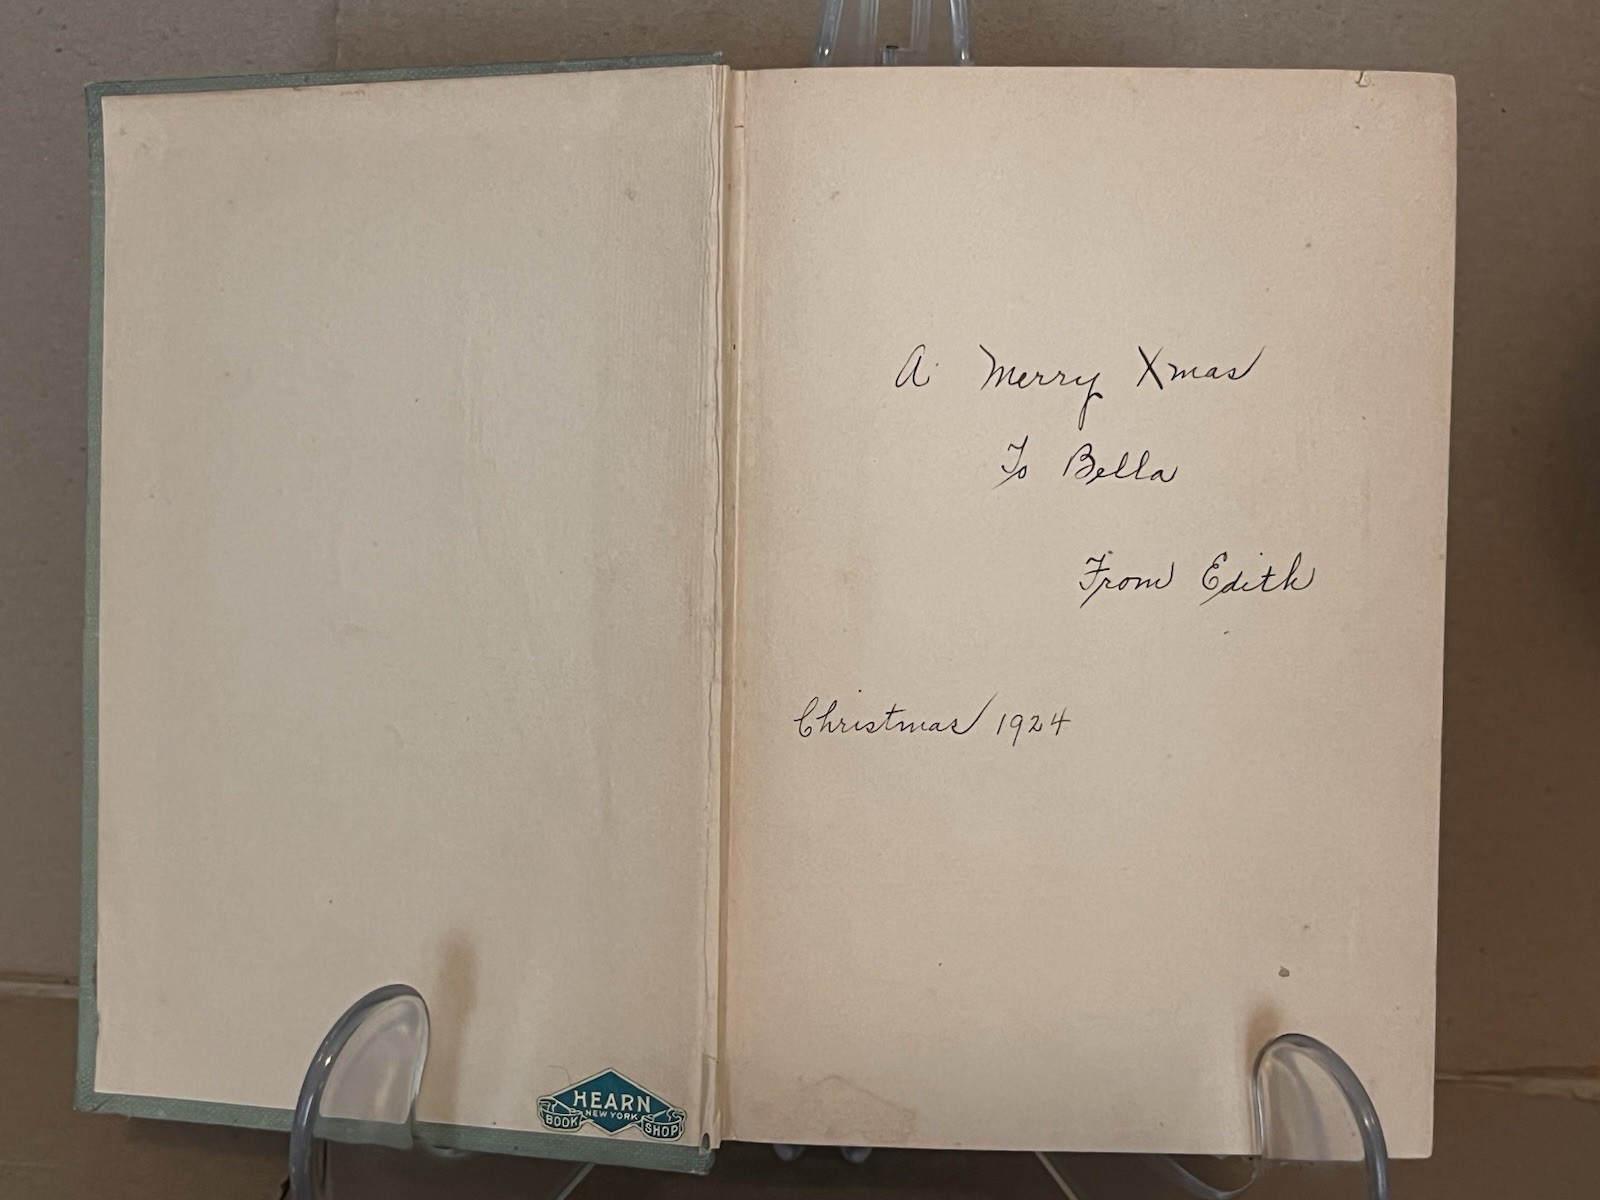 A Merry Xmas
To Bella
From Edith
Christmas 1924
HEARN
NEW YORK
BOOK SHOP